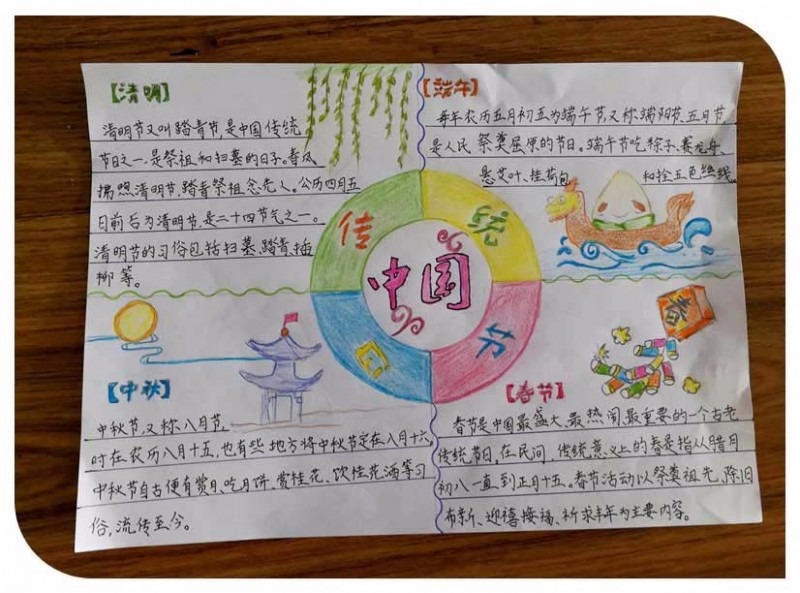 【清明】
清明节又叫踏青节,是中国传统
节日之一,是祭祖和扫墓的日子。春风
拂煦清明节,踏青祭祖念先人。公历四月五
日前后为清明节,是二十四节气之一。
清明节的习俗包括扫墓、踏青、插
柳等。
【端午】
每年农历五月初五为端午节,又称端阳节、五月节
是人民祭奠屈原的节日。端午节吃粽子、赛龙舟、
悬艾叶、挂荷包 和拴五色丝线。
传统
中国
节日
【中秋】
中秋节,又称八月节,
时在农历八月十五,也有些地方将中秋节定在八月十六
中秋节自古便有赏月、吃月饼、赏桂花、饮桂花酒等习
俗,流传至今。
春
【春节】
春节是中国最盛大、最热闹、最重要的一个古老
传统节日,在民间,传统意义上的春是指从腊月
初八一直到正月十五。春节活动以祭奠祖先、除旧
布新、迎禧接福、祈求丰年为主要内容。